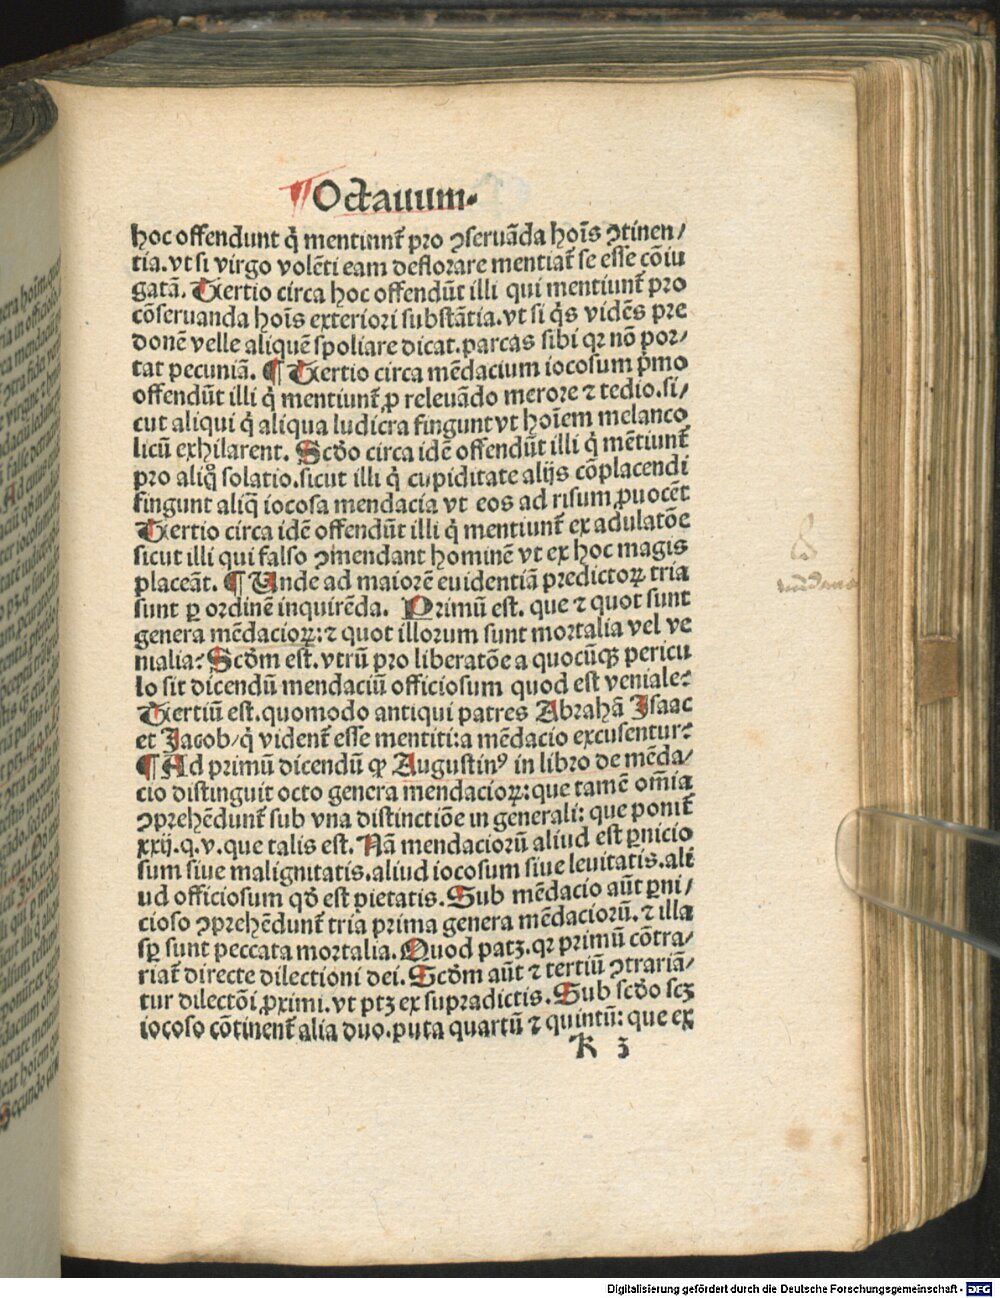 ¶Octauum.
hoc offendunt q̇ mentiunt᷑ pro ꝯseruãda hoĩs ꝯtinen/
tia.vt si virgo volẽti eam deflorare mentiat᷑ se esse cõiu
gatã. Tertio circa hoc offendũt illi qui mentiunt᷑ pro
cõseruanda hoĩs exteriori substãtia.vt si q̇s vidẽs pre
donẽ velle aliquẽ spoliare dicat.parcas sibi qꝛ nõ por/
tat pecuniã. ¶ Tertio circa mẽdacium iocosum p̃mo
offendũt illi q̇ mentiunt᷑ ꝓ releuãdo merore ⁊ tedio.si/
cut aliqui q̇ aliqua ludicra fingunt vt hoĩem melanco
licũ exhilarent. Scḋo circa idẽ offendũt illi q̇ mẽtiunt᷑
pro aliq̊ solatio.sicut illi q̇ cupiditate alijs cõplacendi
fingunt aliq̃ iocosa mendacia vt eos ad risum ꝓuocẽt
Tertio circa idẽ offendũt illi q̇ mentiunt᷑ ex adulatõe
sicut illi qui falso ꝯmendant hominẽ vt ex hoc magis
placeãt. ¶ Unde ad maiorẽ euidentiã predictoꝝ tria
sunt ꝑ ordinẽ inquirẽda. Primũ est. que ⁊ quot sunt
genera mẽdacioꝝ:⁊ quot illorum sunt mortalia vel ve
nialia? Scḋm est.vtrũ pro liberatõe a quocũqꝫ pericu
lo sit dicendũ mendaciũ officiosum quod est veniale?
Tertiũ est.quomodo antiqui patres Abrahã Isaac
et Jacob/q̇ vident᷑ esse mentiti:a mẽdacio excusentur?
¶ Ad primũ dicendũ ꝙ Augustinꝰ in libro de mẽda/
cio distinguit octo genera mendacioꝝ:que tamẽ om̃ia
ꝯprehẽdunt᷑ sub vna distinctiõe in generali: que ponit᷑
xxij.q.v.que talis est. Nã mendaciorũ aliud est ꝑnicio
sum siue malignitatis.aliud iocosum siue leuitatis.ali
ud officiosum qḋ est pietatis. Sub mẽdacio aũt ꝑni/
cioso ꝯprehẽdunt᷑ tria prima genera mẽdaciorũ.⁊ illa
sꝑ sunt peccata mortalia. Quod patꝫ.qꝛ primũ cõtra/
riat᷑ directe dilectioni dei. Scḋm aũt ⁊ tertiũ ꝯtrariã/
tur dilectõi ꝓximi.vt ptꝫ ex supradictis. Sub scḋo scꝫ
iocoso cõtinent᷑ alia duo.puta quartũ ⁊ quintũ: que ex
k 3
Digitalisierung gefördert durch die Deutsche Forschungsgemeinschaft - DFG